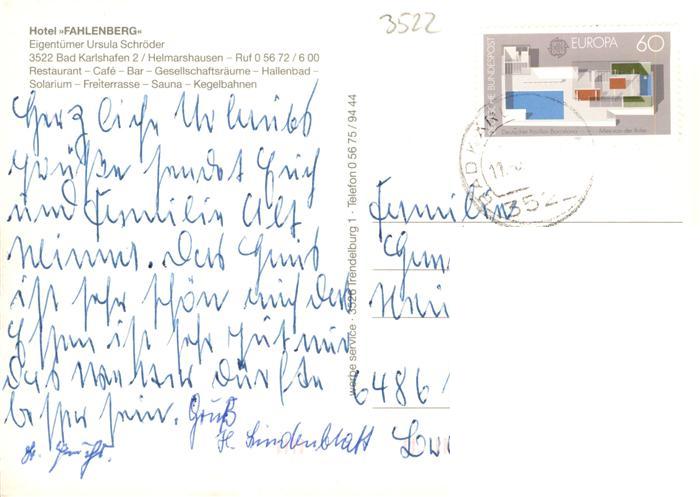 3522
Hotel »FAHLENBERG«
Eigentümer Ursula Schröder
3522 Bad Karlshafen 2 / Helmarshausen – Ruf 0 56 72 / 6 00
Restaurant – Café – Bar – Gesellschaftsräume – Hallenbad –
Solarium – Freiterrasse – Sauna – Kegelbahnen
Herzliche Urlaubs
grüße sendet
und Familie
Das Haus
ist sehr schön auch das
Essen ist sehr gut nur
das Wetter dürfte
besser sein. Gruß
H. Lindenblatt
werbe service · 3526 Trendelburg 1 · Telefon 0 56 75 / 94 44
DEUTSCHE BUNDESPOST
EUROPA 60
Deutscher Pavillon Barcelona
Mies van der Rohe
BAD KA
11.
352
Familie
6486